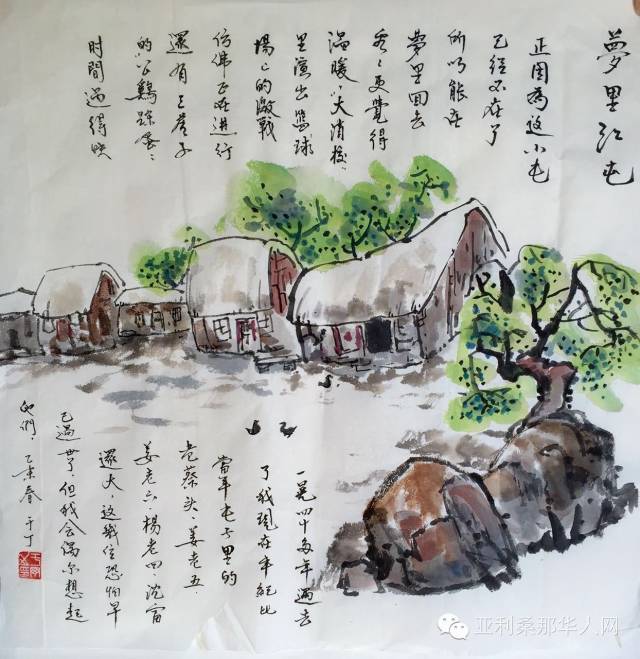 夢里江屯
正因為这小屯
已经不在了
所以能在
夢里回去
我更覺得
温暖，大消极、
里演出篮球
場上的激戰
仿佛正在进行
還有王老子
的小公鷄踩蛋、
時間過得快
一晃四十多年過去
了我現在年紀比
當年屯子里的
老蔡头、姜老五、
姜老六、楊老四、沈富
還大，这幾位恐怕早
已過世了，但我会偶尔想起
他們，乙未春 于丁
亚利桑那华人网